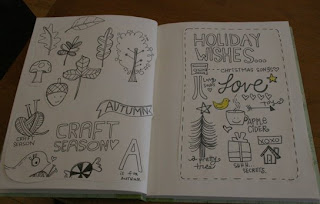 AUTUMN
CRAFT
SEASON
CRAFT
SEASON
A
is for
AUTUMN.
HOLIDAY
WISHES...
CHRISTMAS
love
APPLE
CIDER
XOXO
tree